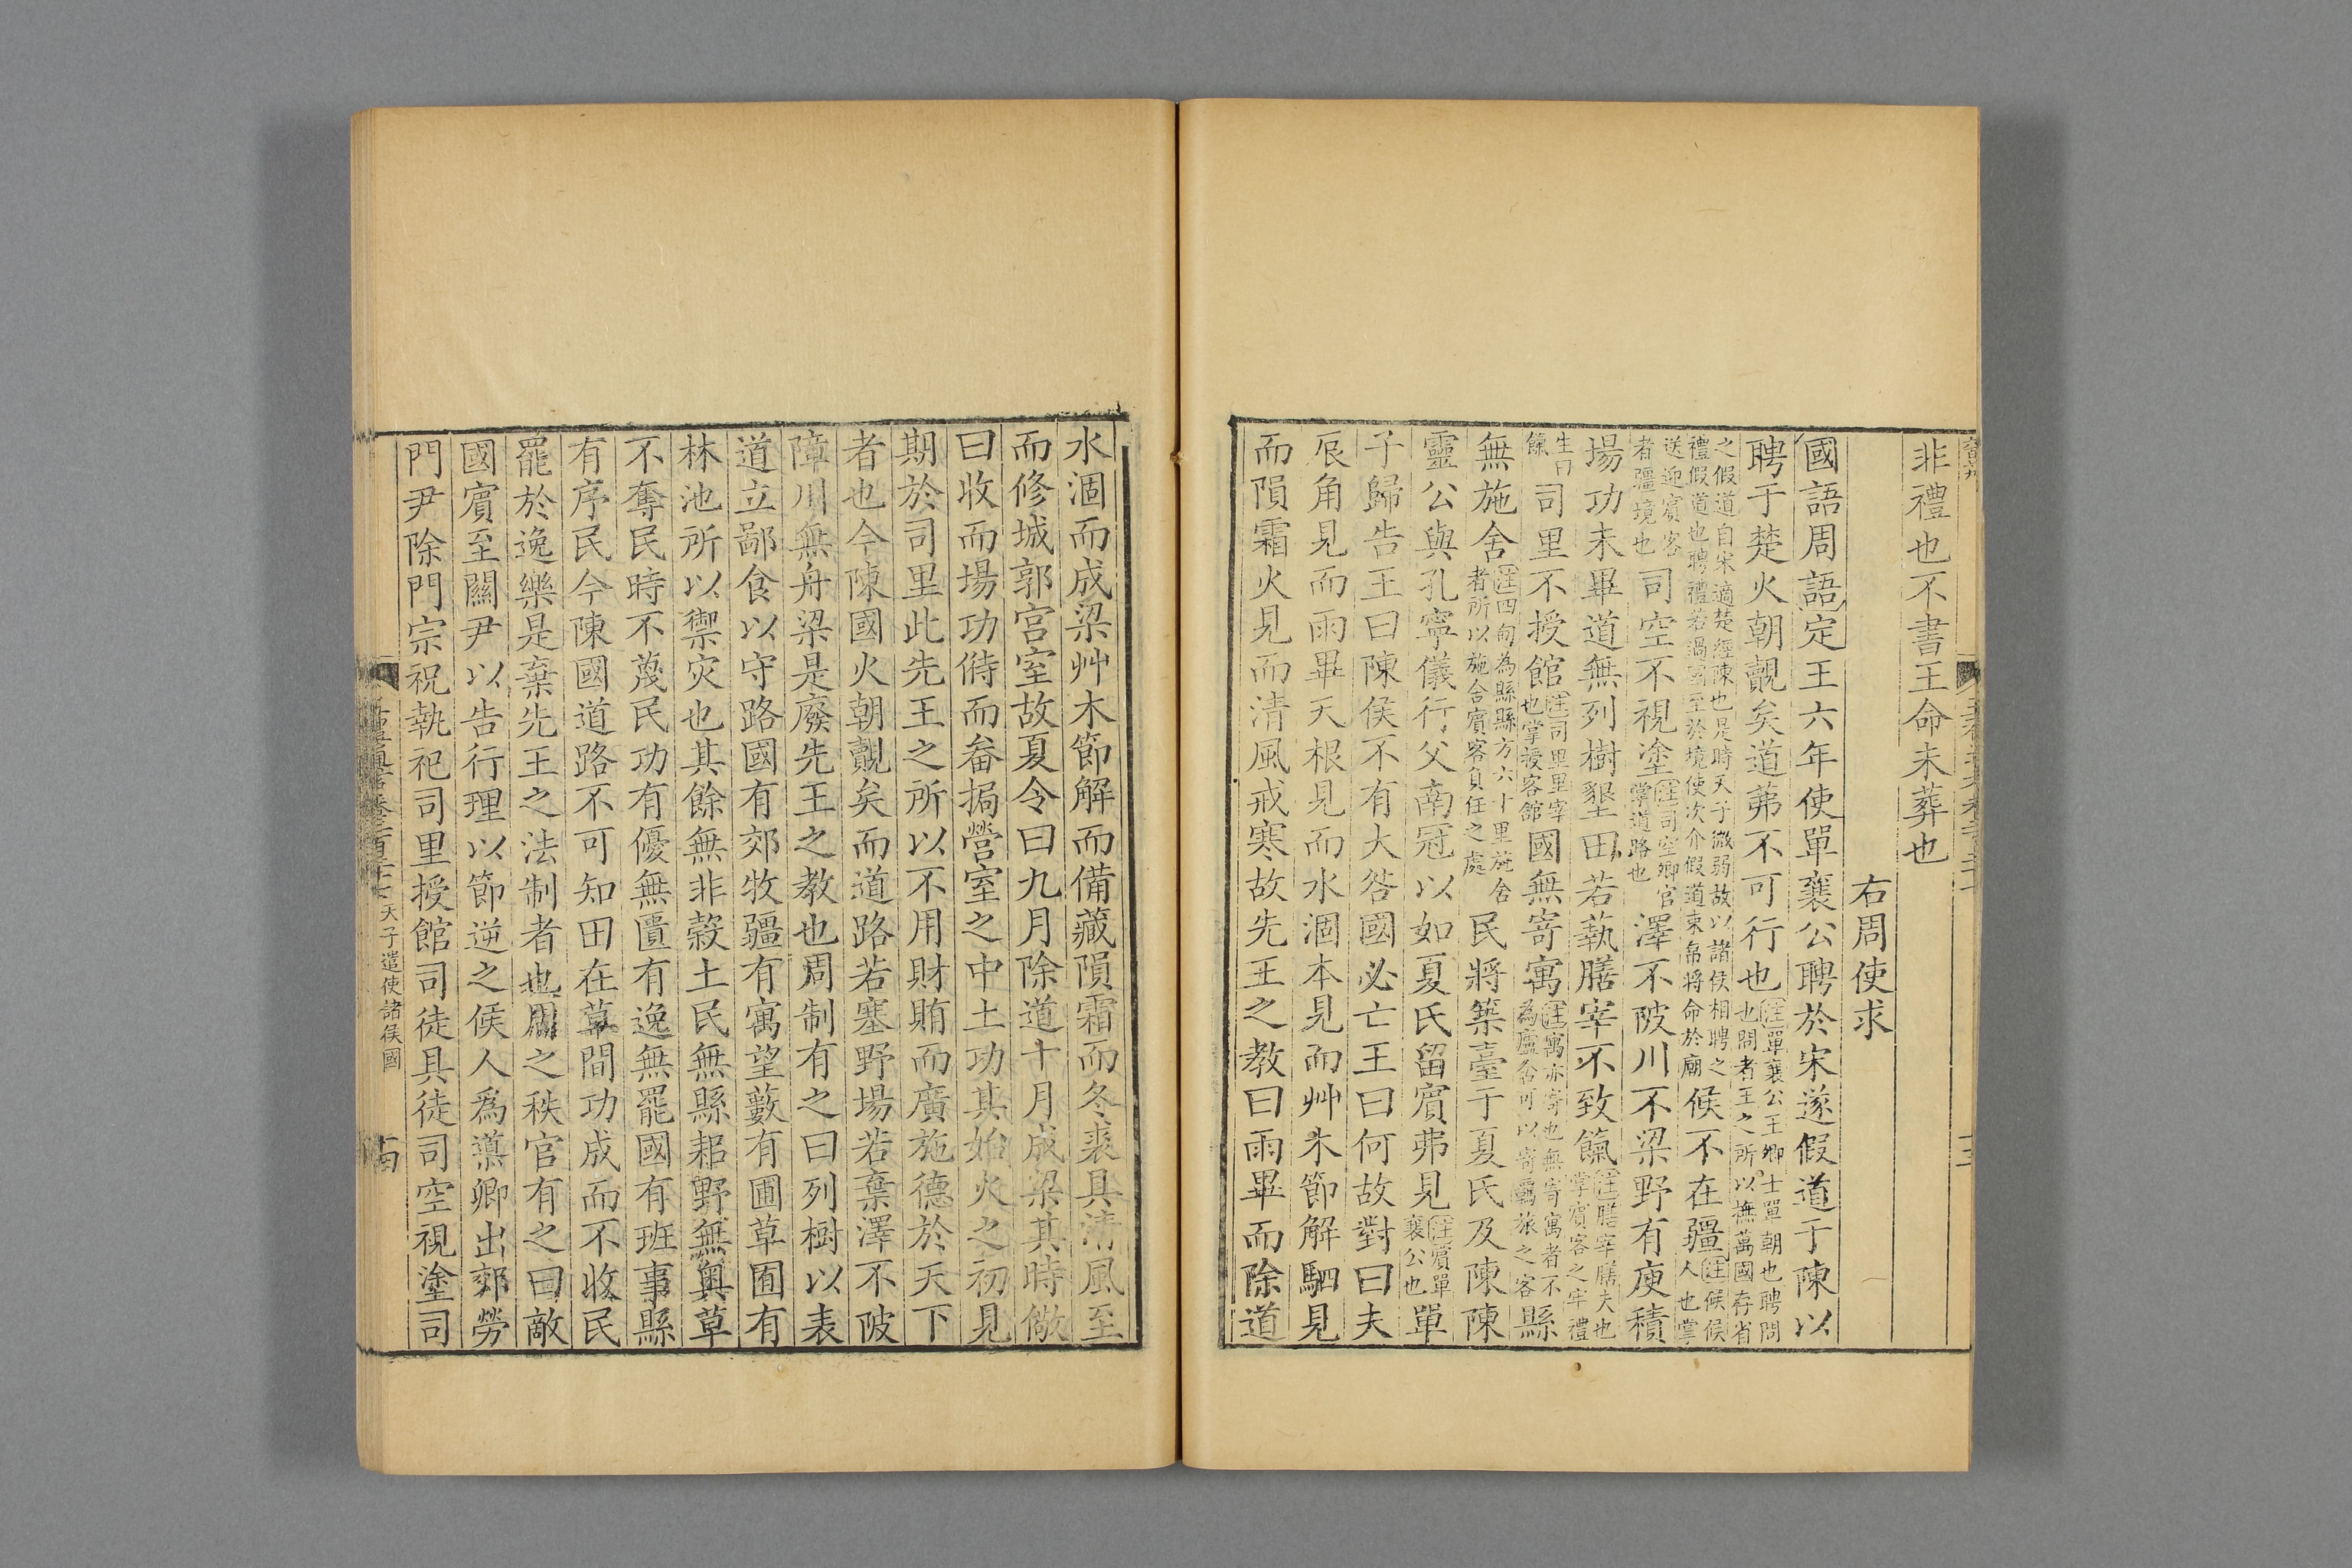 非禮也不書王命未葬也
右周使求
國語周語定王六年使單襄公聘於宋遂假道于陳以
聘于楚火朝覿矣道茀不可行也注單襄公王卿士單朝也聘問也問者王之所以撫萬國存省
之假道自宋適楚經陳也是時天子微弱故以諸侯相聘之禮假道也聘禮若過國至於境使次介假道束帛將命於廟候不在疆注候候人也掌
送迎賓客者疆境也司空不視塗注司空卿官掌道路也澤不陂川不梁野有庾積
場功未畢道無列樹墾田若執膳宰不致餼注膳宰膳夫也掌賓客之牢禮
生曰餼司里不授館注司里里宰也掌授客館國無寄寓注寓亦寄也無寄寓者不為廬舍可以寄羈旅之客縣
無施舍注四甸為縣縣方六十里施舍者所以施舍賓客負任之處民將築臺于夏氏及陳陳
靈公與孔寧儀行父南冠以如夏氏留賓弗見注賓單襄公也單
子歸告王曰陳侯不有大咎國必亡王曰何故對曰夫
辰角見而雨畢天根見而水涸本見而艸木節解駟見
而隕霜火見而清風戒寒故先王之教曰雨畢而除道
水涸而成梁艸木節解而備藏隕霜而冬裘具清風至
而修城郭宮室故夏令曰九月除道十月成梁其時儆
曰收而場功偫而畚挶營室之中土功其始火之初見
期於司里此先王之所以不用財賄而廣施德於天下
者也今陳國火朝覿矣而道路若塞野場若棄澤不陂
障川無舟梁是廢先王之教也周制有之曰列樹以表
道立鄙食以守路國有郊牧疆有寓望藪有圃草囿有
林池所以禦灾也其餘無非穀土民無縣耜野無奧草
不奪民時不蔑民功有優無匱有逸無罷國有班事縣
有序民今陳國道路不可知田在草間功成而不收民
罷於逸樂是棄先王之法制者也周之秩官有之曰敵
國賓至關尹以告行理以節逆之侯人爲導卿出郊勞
門尹除門宗祝執祀司里授館司徒具徒司空視塗司
天子遣使諸侯國
十四